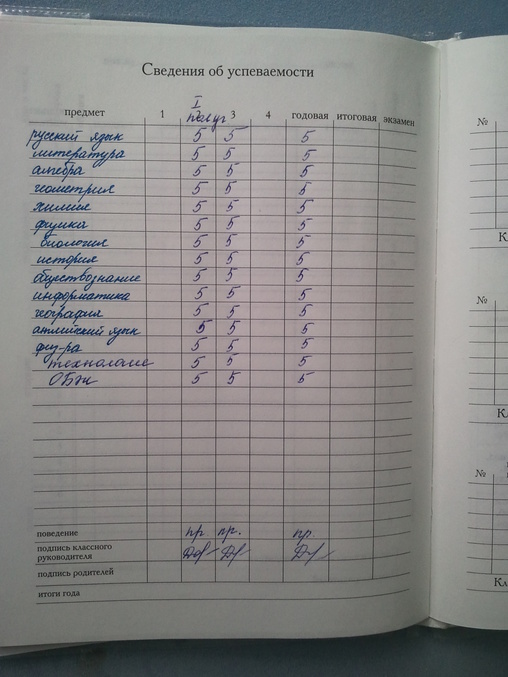 Сведения об успеваемости
I
полуг
предмет 1 3 4 годовая итоговая экзамен
русский язык 5 5 5
литература 5 5 5
алгебра 5 5 5
геометрия 5 5 5
химия 5 5 5
физика 5 5 5
биология 5 5 5
история 5 5 5
обществознание 5 5 5
информатика 5 5 5
география 5 5 5
английский язык 5 5 5
физ-ра 5 5 5
технология 5 5 5
ОБж 5 5 5
поведение пр. пр. пр
подпись классного
руководителя
подпись родителей
итоги года
№
К
№
К
№
Кл